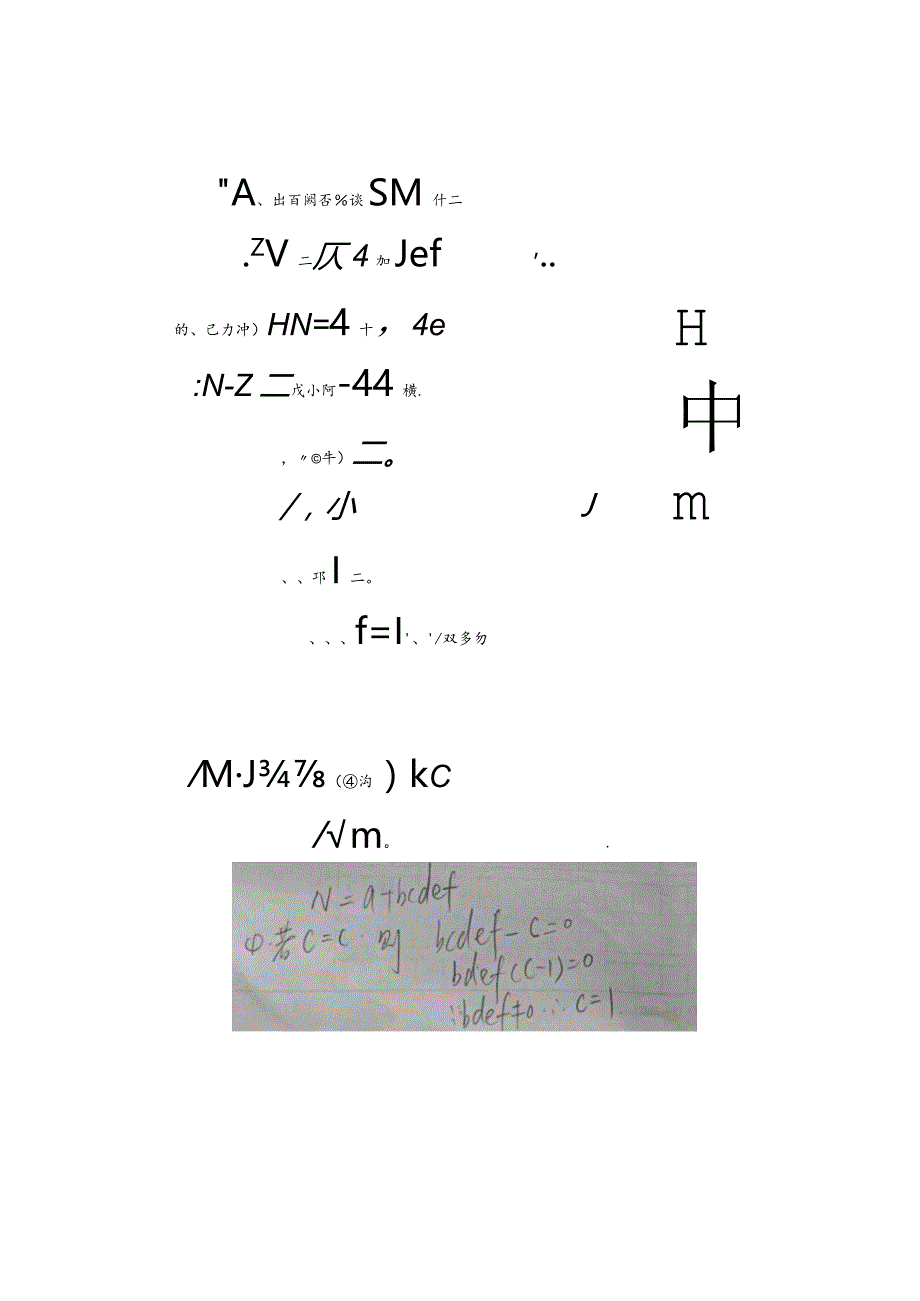 "A、出百阙否%谈 SM 什二
.ZV 二仄 4 加 Jef '..
的、己力冲）HN=4 十， 4e H
:N-Z 二戊小阿-44 横.
中
，〃©牛）二。
/，小 J m
、、邛 I 二。
、、、f=I'、'/双多勿
/M·J¾⅞（④沟）kC
/√m。 .
N=a+bcdef
①若C=C 则 bcdef-C=0
bdef(C-1)=0
∵bdef≠0 ∴C=1